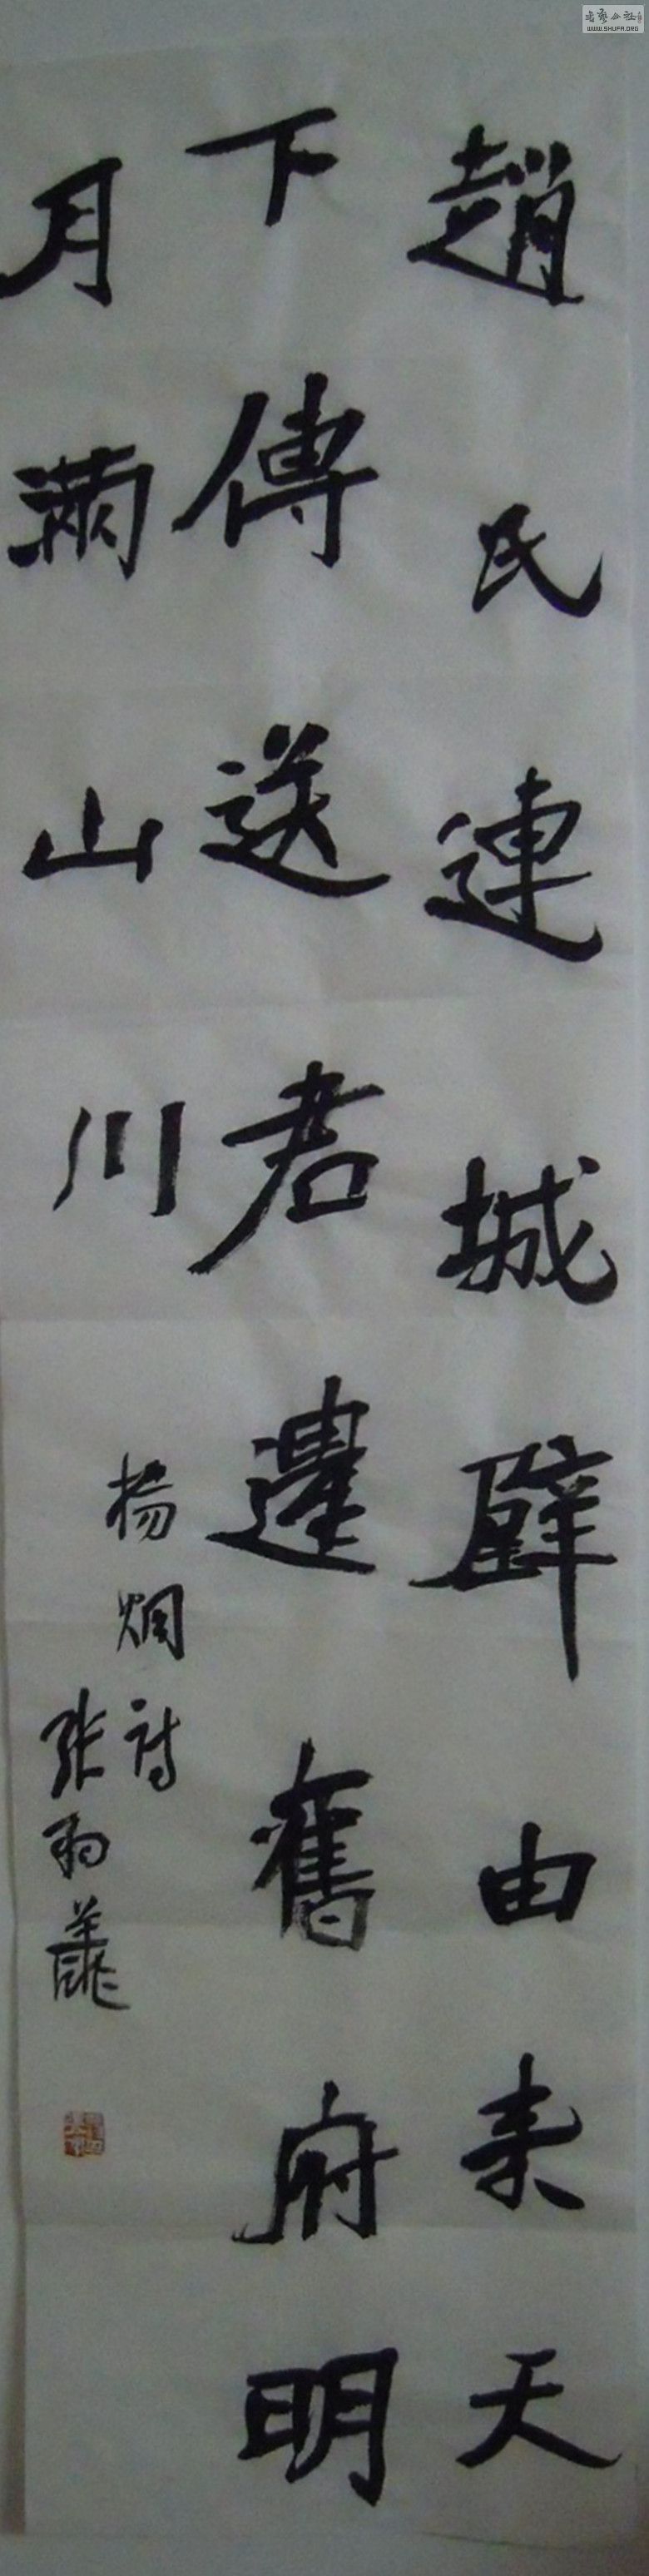 趙氏連城璧由來天
下傳送君還舊府明
月滿山川
楊炯詩
張羽
書藝公社
WWW.SHUFA.ORG